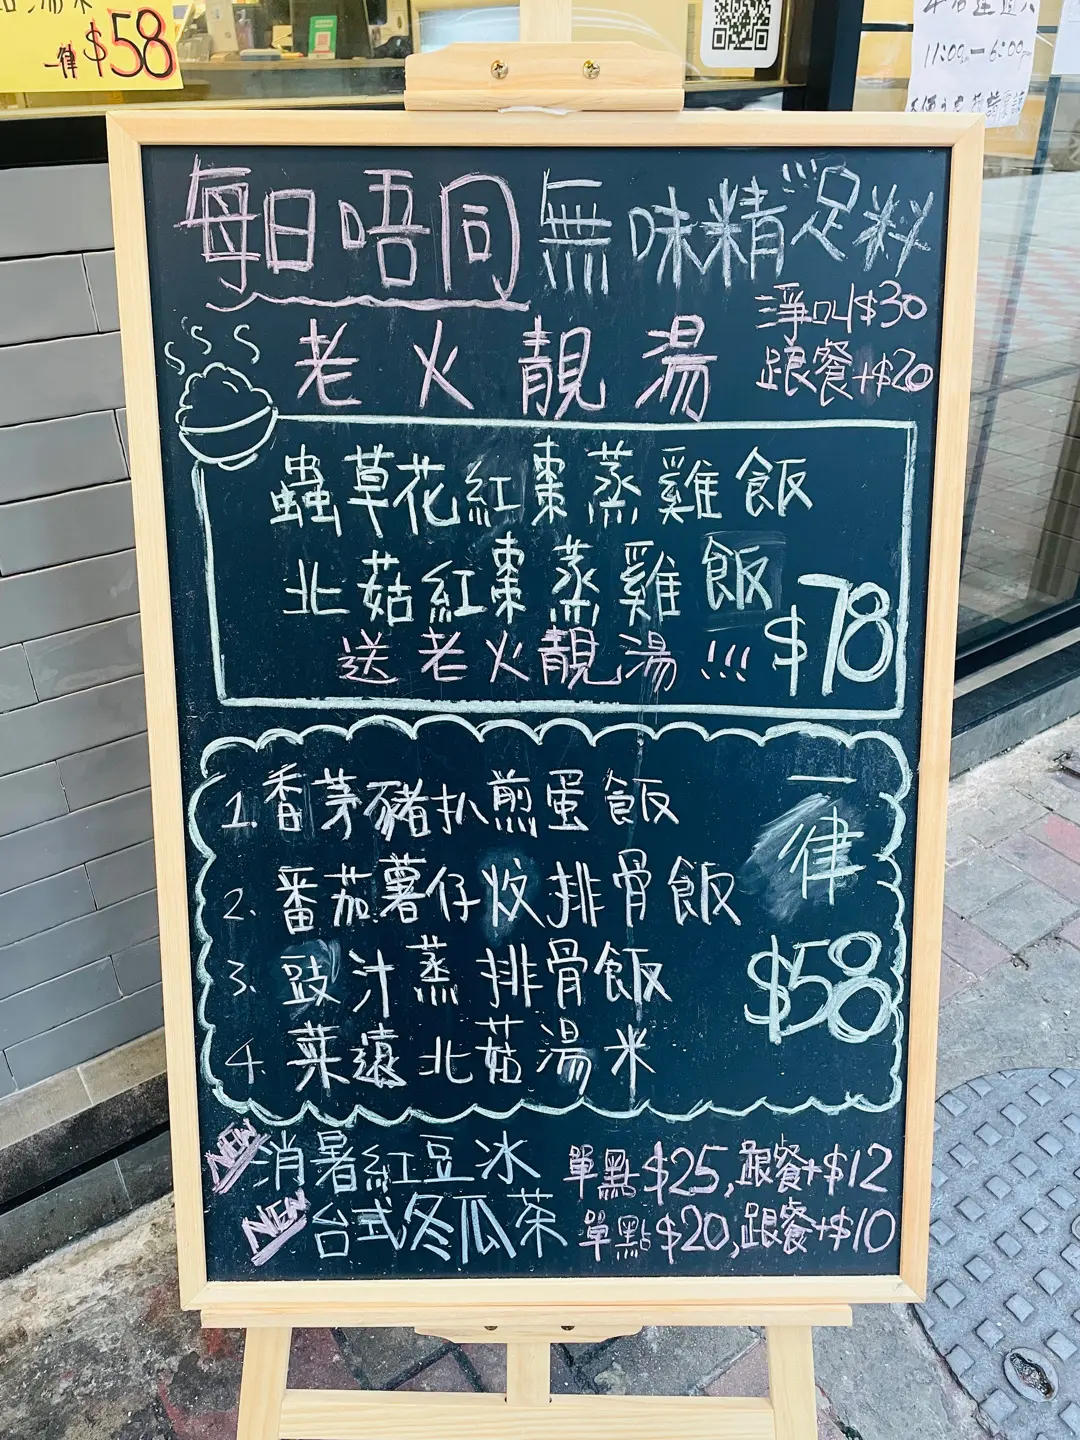 一律$58
11:00am-6:00pm
每日唔同 無味精 足料
淨叫$30
老火靚湯
跟餐+$20
蟲草花紅棗蒸雞飯
北菇紅棗蒸雞飯
$78
送老火靚湯!!!
1. 香茅豬扒煎蛋飯
一律
2. 番茄薯仔炆排骨飯
3. 豉汁蒸排骨飯
$58
4. 菜遠北菇湯米
NEW 消暑紅豆冰 單點$25,跟餐+$12
NEW 台式冬瓜茶 單點$20,跟餐+$10